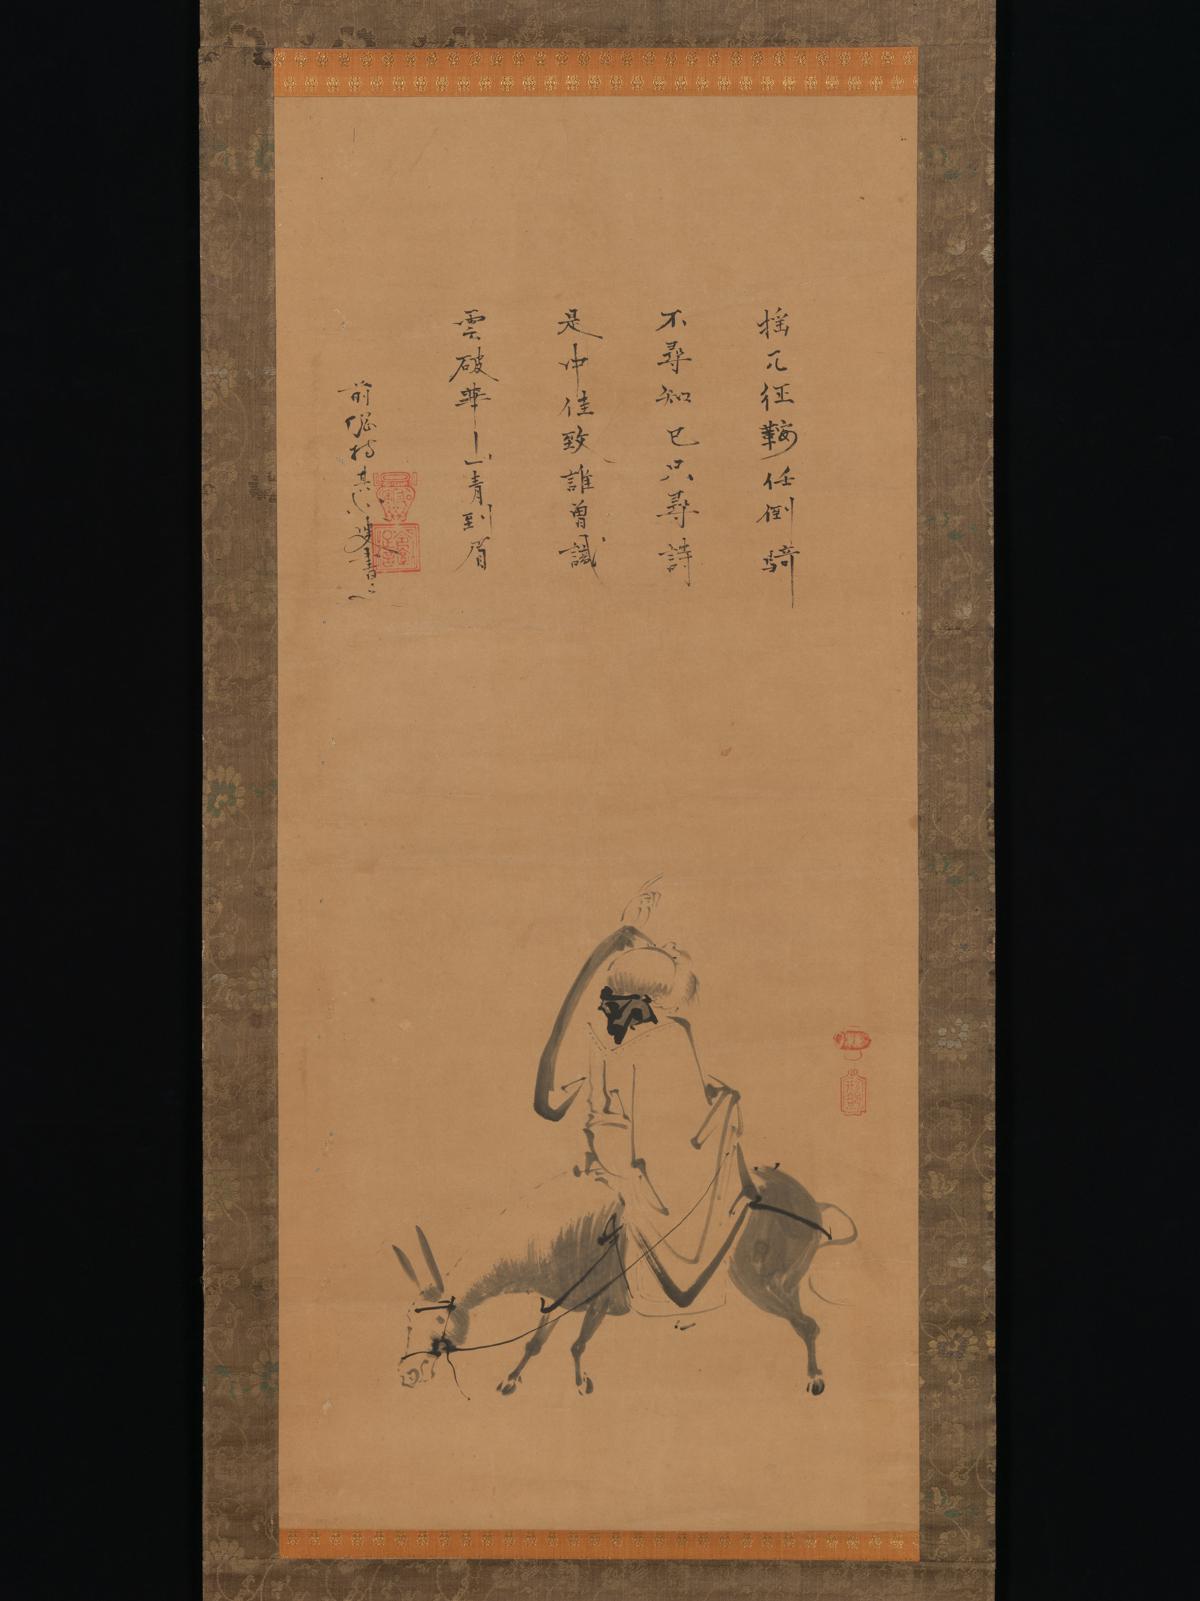 搖兀征鞍任倒騎
不尋知己只尋詩
是中佳致誰曽識
雲破華山青到眉
前
書